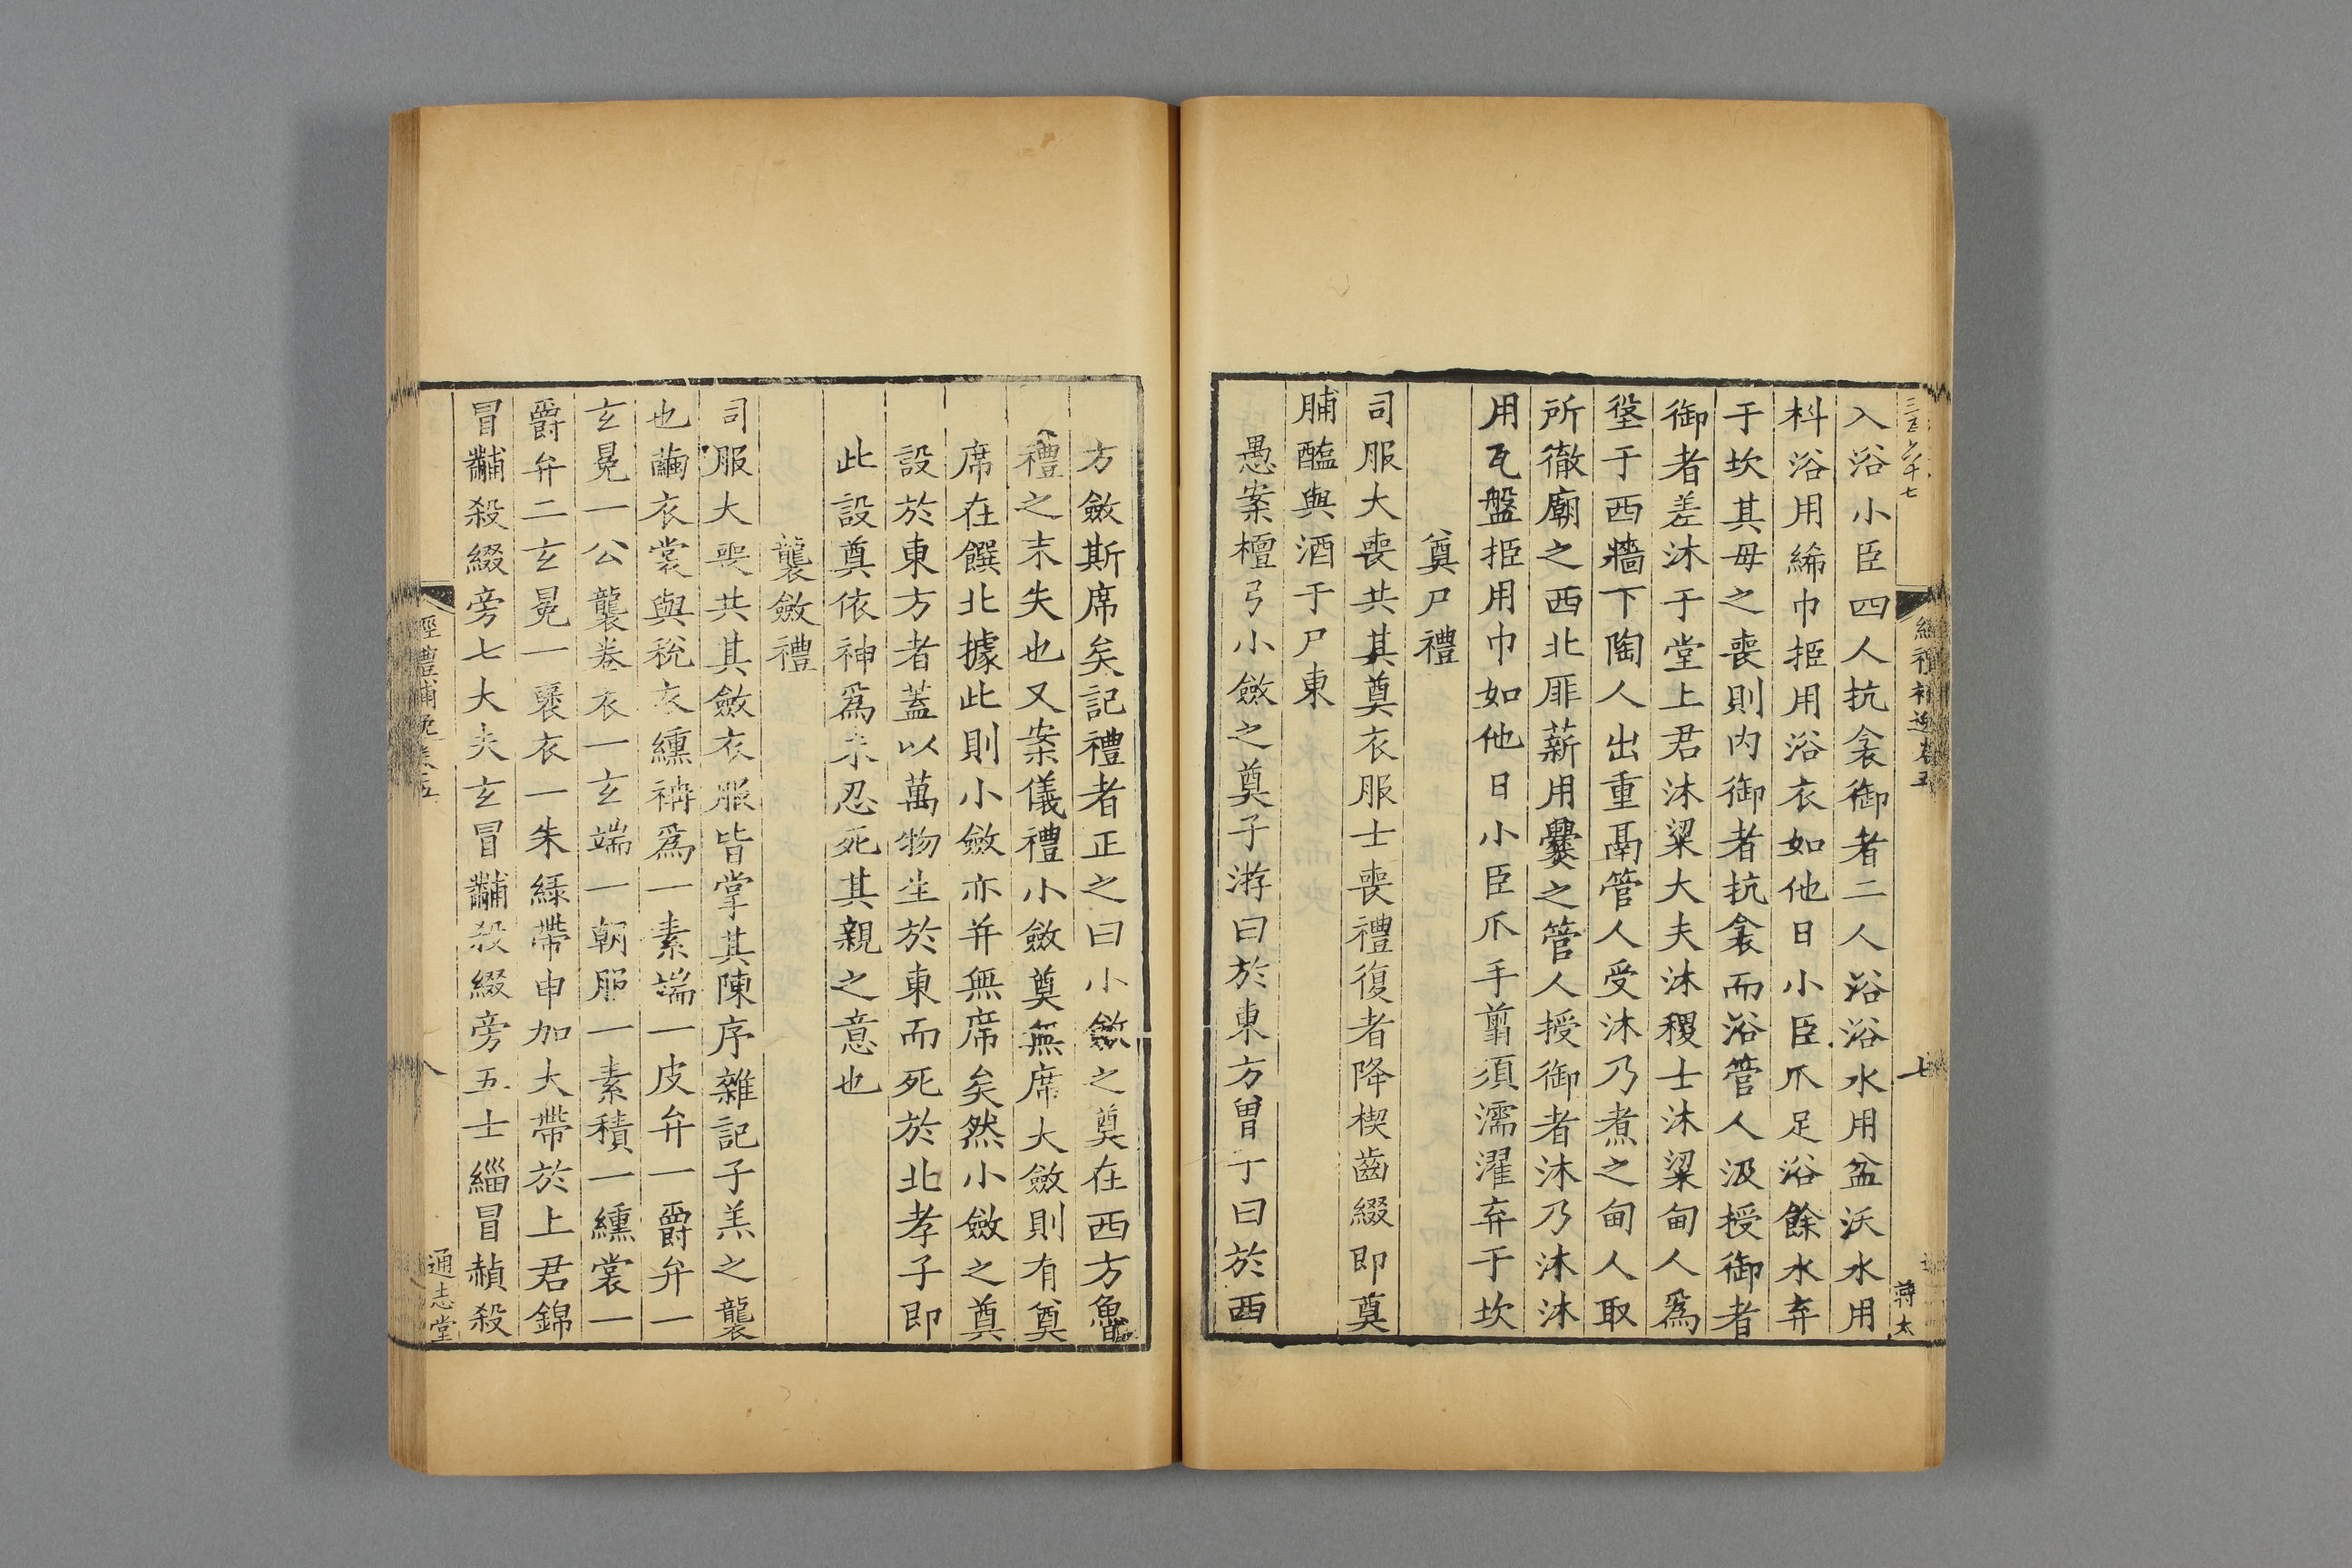 入浴小臣四人抗衾御者二人浴浴水用盆沃水用
枓浴用絺巾挋用浴衣如他日小臣爪足浴餘水弃
于坎其母之喪則内御者抗衾而浴管人汲授御者
御者差沐于堂上君沐粱大夫沐稷士沐粱甸人爲
垼于西牆下陶人出重鬲管人受沐乃煮之甸人取
所徹廟之西北厞薪用爨之管人授御者沐乃沐沐
用瓦盤挋用巾如他日小臣爪手翦須濡濯弃于坎
奠尸禮
司服大喪共其奠衣服士喪禮復者降楔齒綴即奠
脯醢與酒于尸東
愚案檀弓小斂之奠子游曰於東方曾子曰於西
方斂斯席矣記禮者正之曰小斂之奠在西方魯
禮之末失也又案儀禮小斂奠無席大斂則有奠
席在饌北據此則小斂亦并無席矣然小斂之奠
設於東方者蓋以萬物生於東而死於北孝子即
此設奠依神爲未忍死其親之意也
襲斂禮
司服大喪共其斂衣服皆掌其陳序雜記子羔之襲
也繭衣裳與稅衣纁袡爲一素端一皮弁一爵弁一
玄冕一公襲卷衣一玄端一朝服一素積一纁裳一
爵弁二玄冕一襃衣一朱緑帶申加大帶於上君錦
冒黼殺綴旁七大夫玄冒黼殺綴旁五士緇冒赬殺
經禮補逸卷五
七
蔣太
經禮補逸卷五
八
通志堂